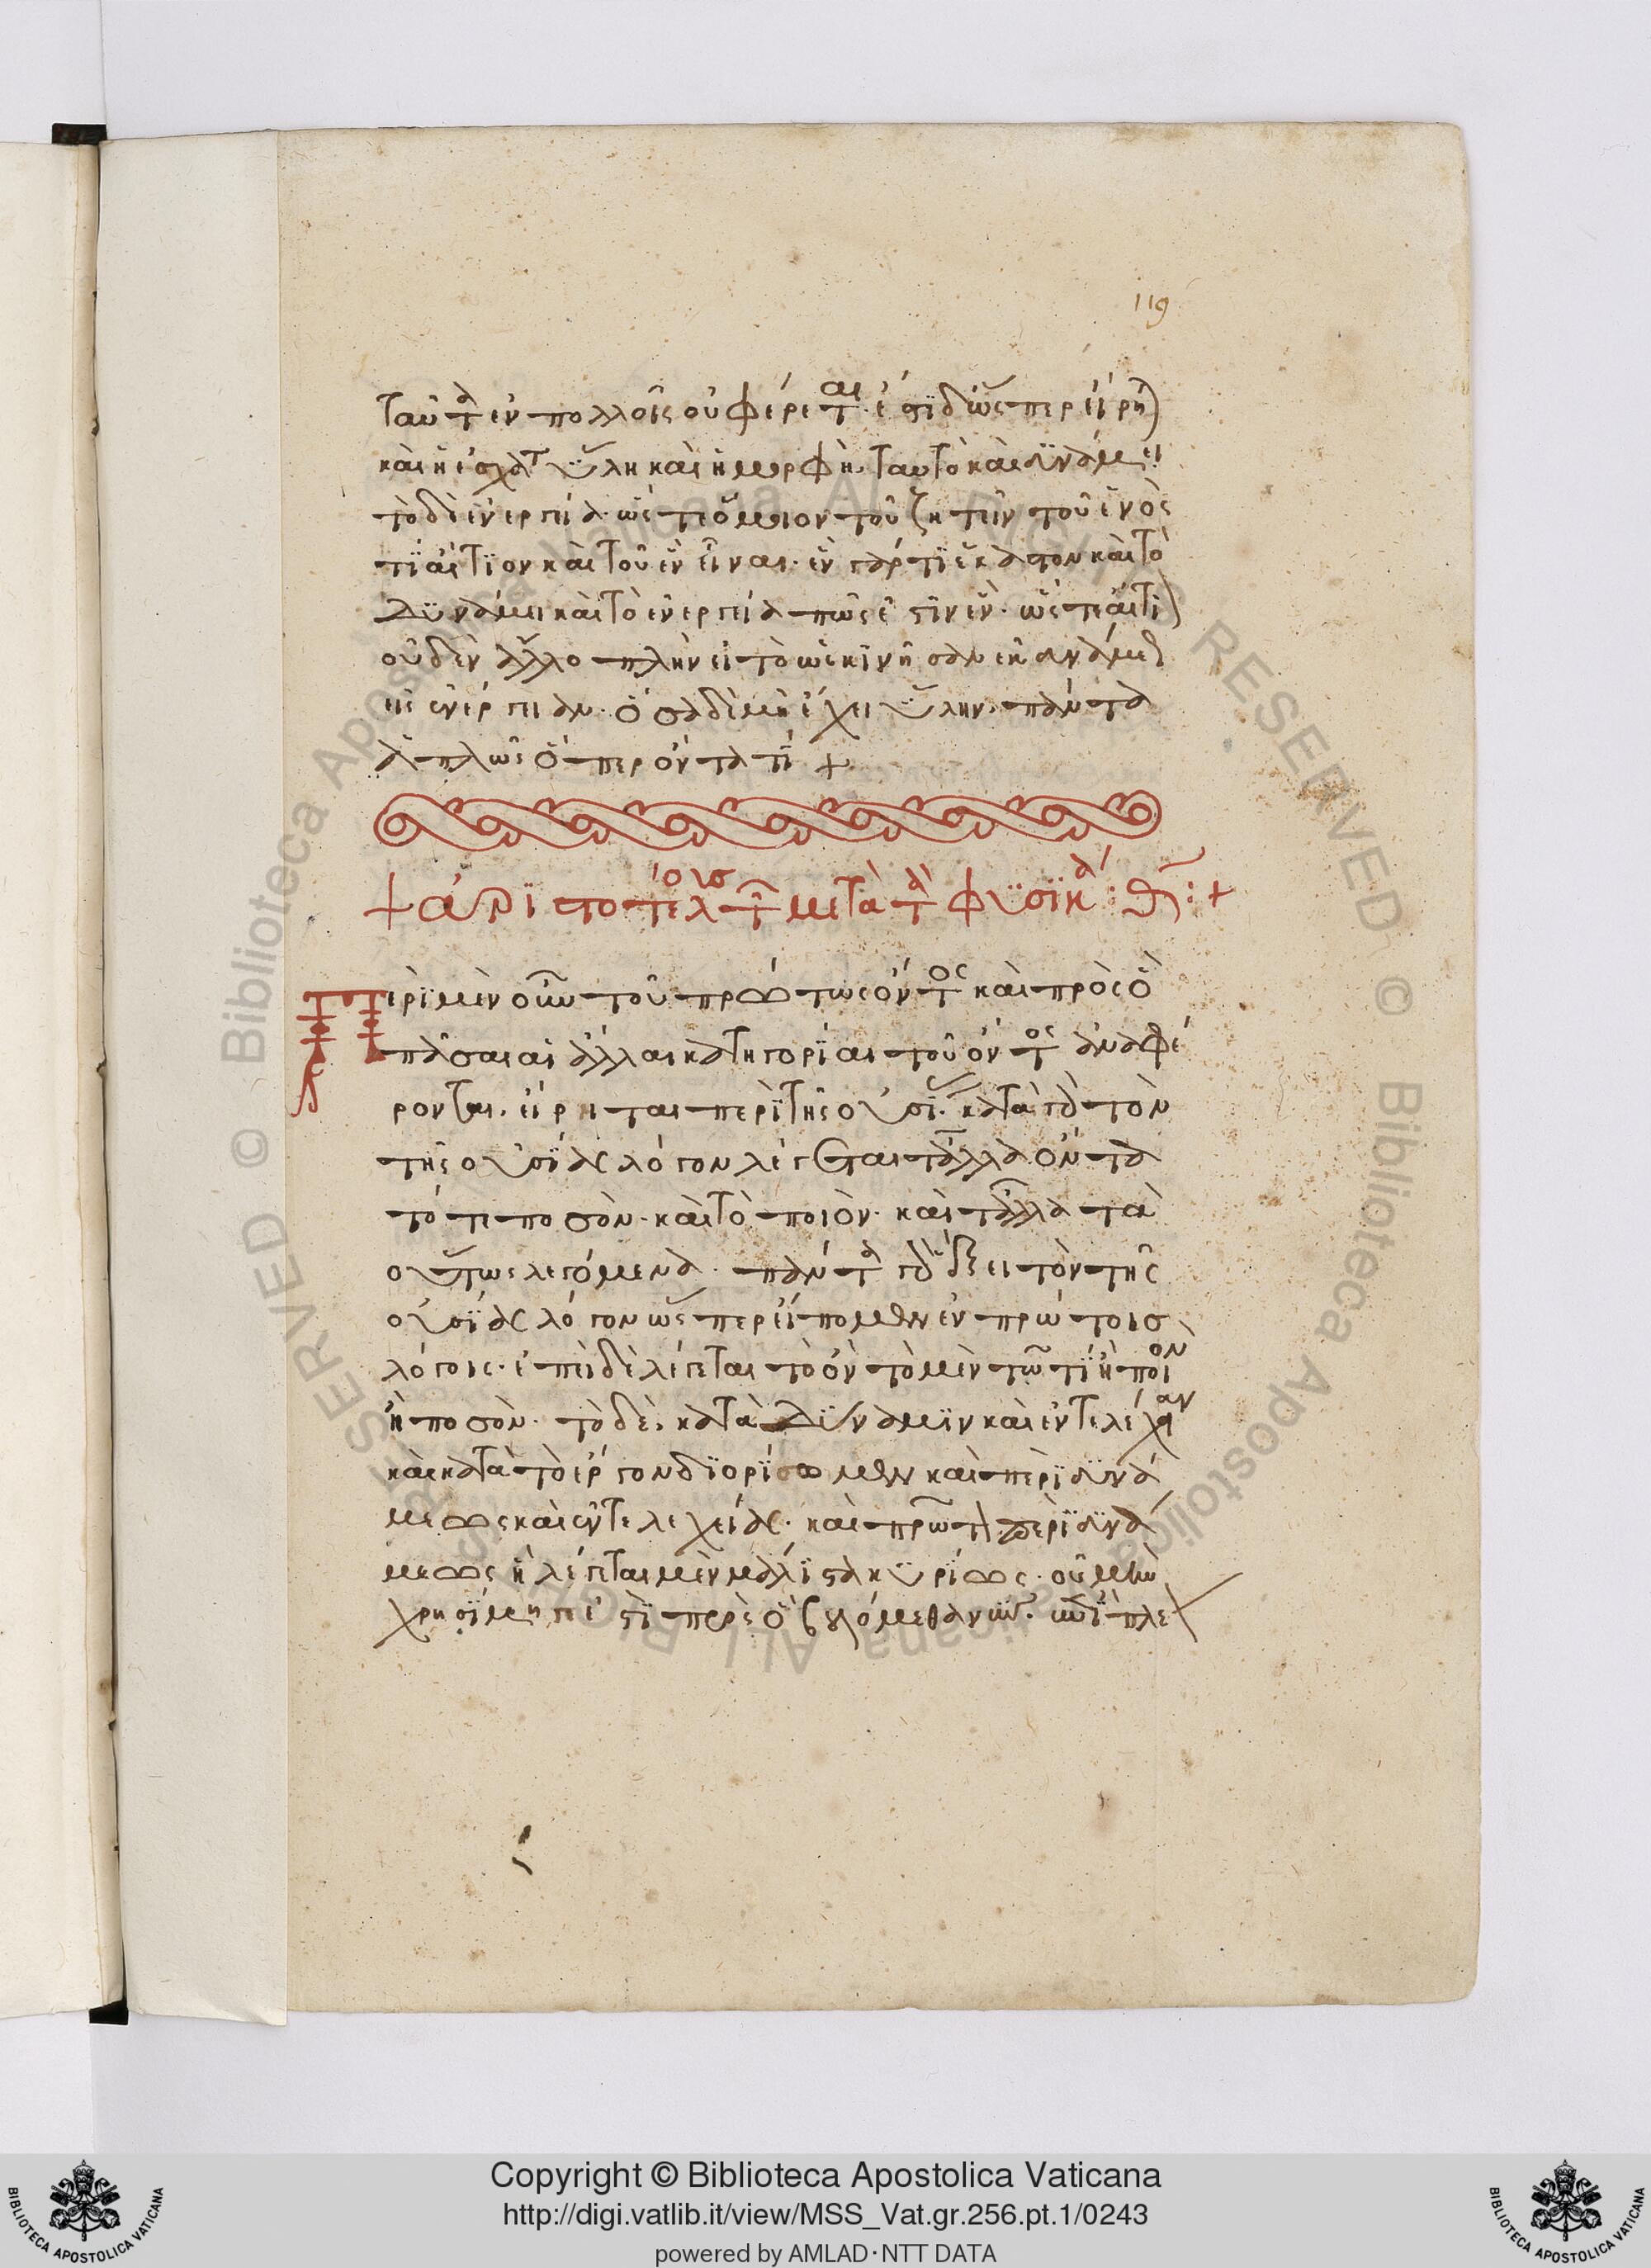 119
ταῦτα ἐν πολλοῖς οὐ φέρεται. ἔστι δ' ὥσπερ εἴρη)
καὶ ἡ ἐσχάτ ὕλη καὶ ἡ μορφὴ ταυτὸ καὶ δυνάμει
τὸ δὲ ἐνεργείᾳ. ὥστε ὅμοιον τοῦ ζητεῖν τοῦ ἑνὸς
τί αἴτιον καὶ τοῦ ἓν εἶναι. ἓν γάρ τι ἕκαστον καὶ τὸ
δυνάμει καὶ τὸ ἐνεργείᾳ πῶς ἐστὶν ἕν. ὥστε αἴτι)
οὐδὲν ἄλλο πλὴν εἴ τὸ ὡς κινῆσαν ἐκ δυνάμε
εἰς ἐνέργειαν. ὅσα δὲ μὴ ἔχει ὕλην. πάντα
ἁπλῶς ὅπερ ὄντα τί +
+ ἀριστοτέλους τῶν μετὰ τὰ φυσικά : Θ : +
Περὶ μὲν οὖν τοῦ πρώτως ὄντος καὶ πρὸς ὃ
πᾶσαι αἱ ἄλλαι κατηγορίαι τοῦ ὄντος ἀναφέ
ρονται. εἴρηται περὶ τῆς οὐσί. κατὰ γὰρ τὸν
τῆς οὐσίας λόγον λέγεται τἄλλα ὄντα
τό τε ποσὸν. καὶ τὸ ποιὸν. καὶ τἄλλα τὰ
οὕτως λεγόμενα. πάντα γὰρ ἕξει τὸν τῆς
οὐσίας λόγον ὥσπερ εἴπομεν ἐν πρώτοις
λόγοις. ἐπεὶ δὲ λέγεται τὸ ὂν τὸ μὲν τῶ τὶ ἢ ποιὸν
ἢ ποσὸν. τὸ δὲ, κατὰ δύναμιν καὶ ἐντελέχειαν
καὶ κατὰ τὸ ἔργον διορίσωμεν καὶ περὶ δυνά
μεως καὶ ἐντελεχείας. καὶ πρῶτ περὶ δυνά
μεως ἣ λέγεται μὲν μάλιστα κυρίως. οὐ μὴν
χρησίμη γέ ἐστι πρὸς ὃ βουλόμεθα νῦν. ἐπὶ πλε